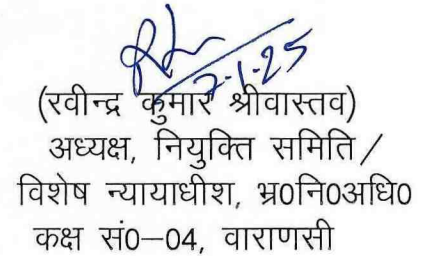 7-1-25
(रवीन्द्र कुमार श्रीवास्तव)
अध्यक्ष, नियुक्ति समिति/
विशेष न्यायाधीश, भ्र0नि0अधि0
कक्ष सं0–04, वाराणसी